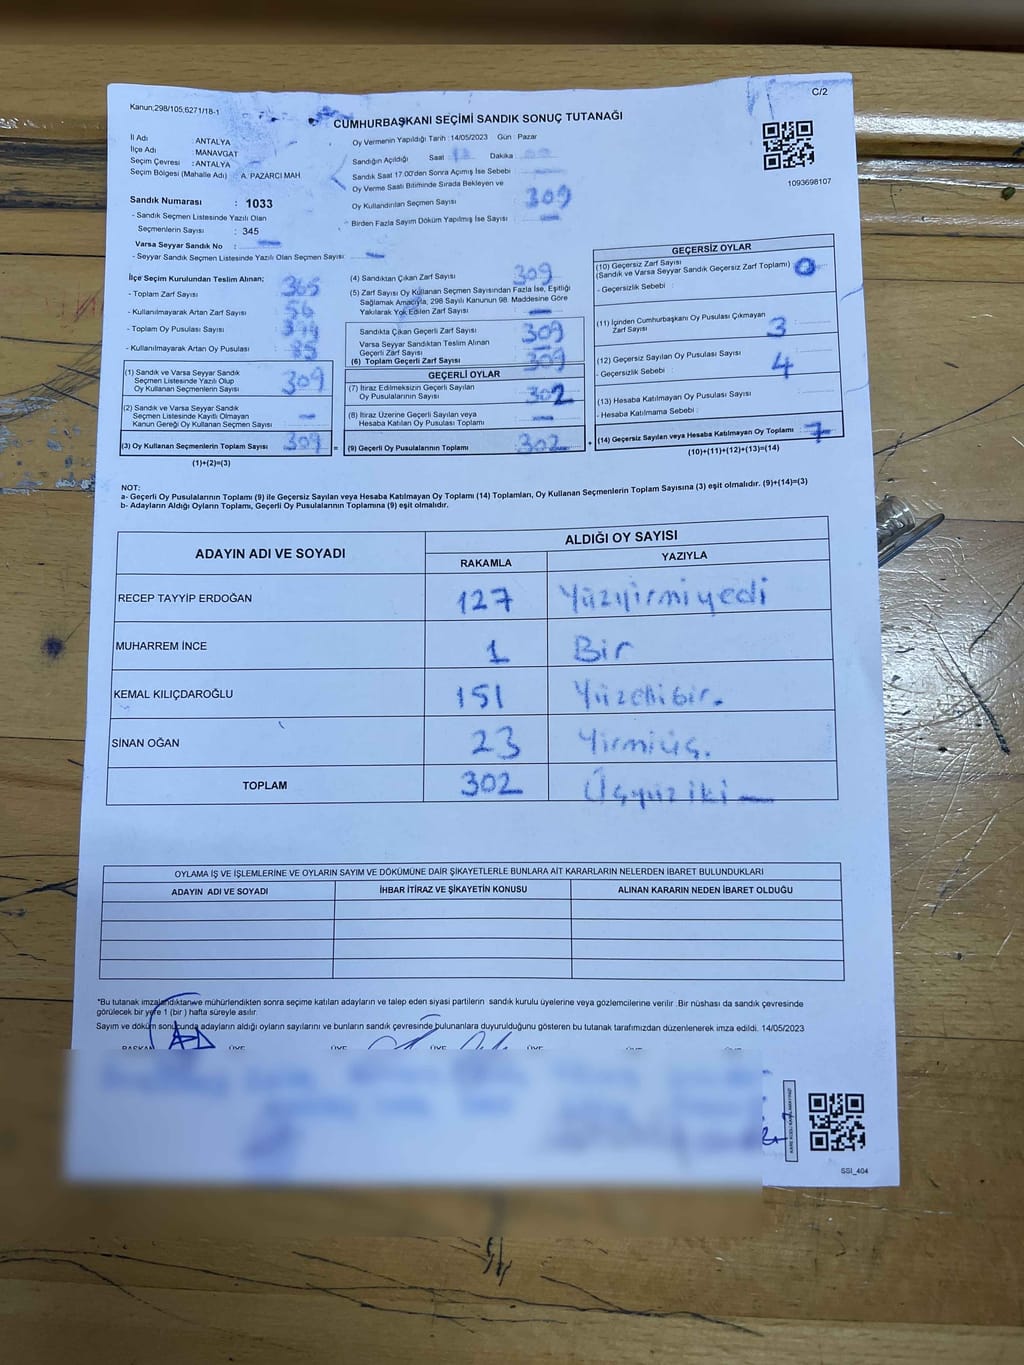 Kanun;298/105;6271/18-1
C/2
CUMHURBAŞKANI SEÇİMİ SANDIK SONUÇ TUTANAĞI
İl Adı : ANTALYA
İlçe Adı : MANAVGAT
Seçim Çevresi : ANTALYA
Seçim Bölgesi (Mahalle Adı) : A. PAZARCI MAH
Oy Vermenin Yapıldığı Tarih : 14/05/2023 Gün : Pazar
Sandığın Açıldığı Saat Dakika
Sandık Saat 17.00'den Sonra Açımış İse Sebebi
Oy Verme Saati Bitiminde Sırada Bekleyen ve
Oy Kullandırılan Seçmen Sayısı 309
Birden Fazla Sayım Döküm Yapılmış İse Sayısı —
1093698107
Sandık Numarası : 1033
- Sandık Seçmen Listesinde Yazılı Olan
Seçmenlerin Sayısı : 345
Varsa Seyyar Sandık No : —
- Seyyar Sandık Seçmen Listesinde Yazılı Olan Seçmen Sayısı: —
İlçe Seçim Kurulundan Teslim Alınan;
- Toplam Zarf Sayısı 365
- Kullanılmayarak Artan Zarf Sayısı : 56
- Toplam Oy Pusulası Sayısı :
- Kullanılmayarak Artan Oy Pusulası :
(1) Sandık ve Varsa Seyyar Sandık
Seçmen Listesinde Yazılı Olup
Oy Kullanan Seçmenlerin Sayısı 309
(2) Sandık ve Varsa Seyyar Sandık
Seçmen Listesinde Kayıtlı Olmayan
Kanun Gereği Oy Kullanan Seçmen Sayısı —
(3) Oy Kullanan Seçmenlerin Toplam Sayısı 309 =
(1)+(2)=(3)
(4) Sandıktan Çıkan Zarf Sayısı 309
(5) Zarf Sayısı Oy Kullanan Seçmen Sayısından Fazla İse, Eşitliği
Sağlamak Amacıyla, 298 Sayılı Kanunun 98. Maddesine Göre
Yakılarak Yok Edilen Zarf Sayısı —
Sandıkta Çıkan Geçerli Zarf Sayısı 309
Varsa Seyyar Sandıktan Teslim Alınan
Geçerli Zarf Sayısı —
(6) Toplam Geçerli Zarf Sayısı 309
GEÇERLİ OYLAR
(7) İtiraz Edilmeksizin Geçerli Sayılan
Oy Pusulasının Sayısı 302
(8) İtiraz Üzerine Geçerli Sayılan veya
Hesaba Katılan Oy Pusulası Toplamı —
(9) Geçerli Oy Pusulalarının Toplamı 302 +
GEÇERSİZ OYLAR
(10) Geçersiz Zarf Sayısı
(Sandık ve Varsa Seyyar Sandık Geçersiz Zarf Toplamı) 0
- Geçersizlik Sebebi :
(11) İçinden Cumhurbaşkanı Oy Pusulası Çıkmayan
Zarf Sayısı 3
(12) Geçersiz Sayılan Oy Pusulası Sayısı 4
- Geçersizlik Sebebi :
(13) Hesaba Katılmayan Oy Pusulası Sayısı
- Hesaba Katılmama Sebebi :
(14) Geçersiz Sayılan veya Hesaba Katılmayan Oy Toplamı 7
(10)+(11)+(12)+(13)=(14)
NOT:
a- Geçerli Oy Pusulalarının Toplamı (9) ile Geçersiz Sayılan veya Hesaba Katılmayan Oy Toplamı (14) Toplamları, Oy Kullanan Seçmenlerin Toplam Sayısına (3) eşit olmalıdır. (9)+(14)=(3)
b- Adayların Aldığı Oyların Toplamı, Geçerli Oy Pusulalarının Toplamına (9) eşit olmalıdır.
ADAYIN ADI VE SOYADI
ALDIĞI OY SAYISI
RAKAMLA YAZIYLA
RECEP TAYYİP ERDOĞAN 127 Yüzyirmiyedi
MUHARREM İNCE 1 Bir
KEMAL KILIÇDAROĞLU 151 Yüzellibir.
SİNAN OĞAN 23 Yirmiüç.
TOPLAM 302 Üçyüziki —
OYLAMA İŞ VE İŞLEMLERİNE VE OYLARIN SAYIM VE DÖKÜMÜNE DAİR ŞİKAYETLERLE BUNLARA AİT KARARLARIN NELERDEN İBARET BULUNDUKLARI
ADAYIN ADI VE SOYADI İHBAR İTİRAZ VE ŞİKAYETİN KONUSU ALINAN KARARIN NEDEN İBARET OLDUĞU
*Bu tutanak imzalandıktan ve mühürlendikten sonra seçime katılan adayların ve talep eden siyasi partilerin sandık kurulu üyelerine veya gözlemcilerine verilir .Bir nüshası da sandık çevresinde
görülecek bir yere 1 (bir ) hafta süreyle asılır.
Sayım ve döküm sonucunda adayların aldığı oyların sayılarını ve bunların sandık çevresinde bulunanlara duyurulduğunu gösteren bu tutanak tarafımızdan düzenlenerek imza edildi. 14/05/2023
BAŞKAN ÜYE ÜYE ÜYE ÜYE ÜYE ÜYE
SSI_404